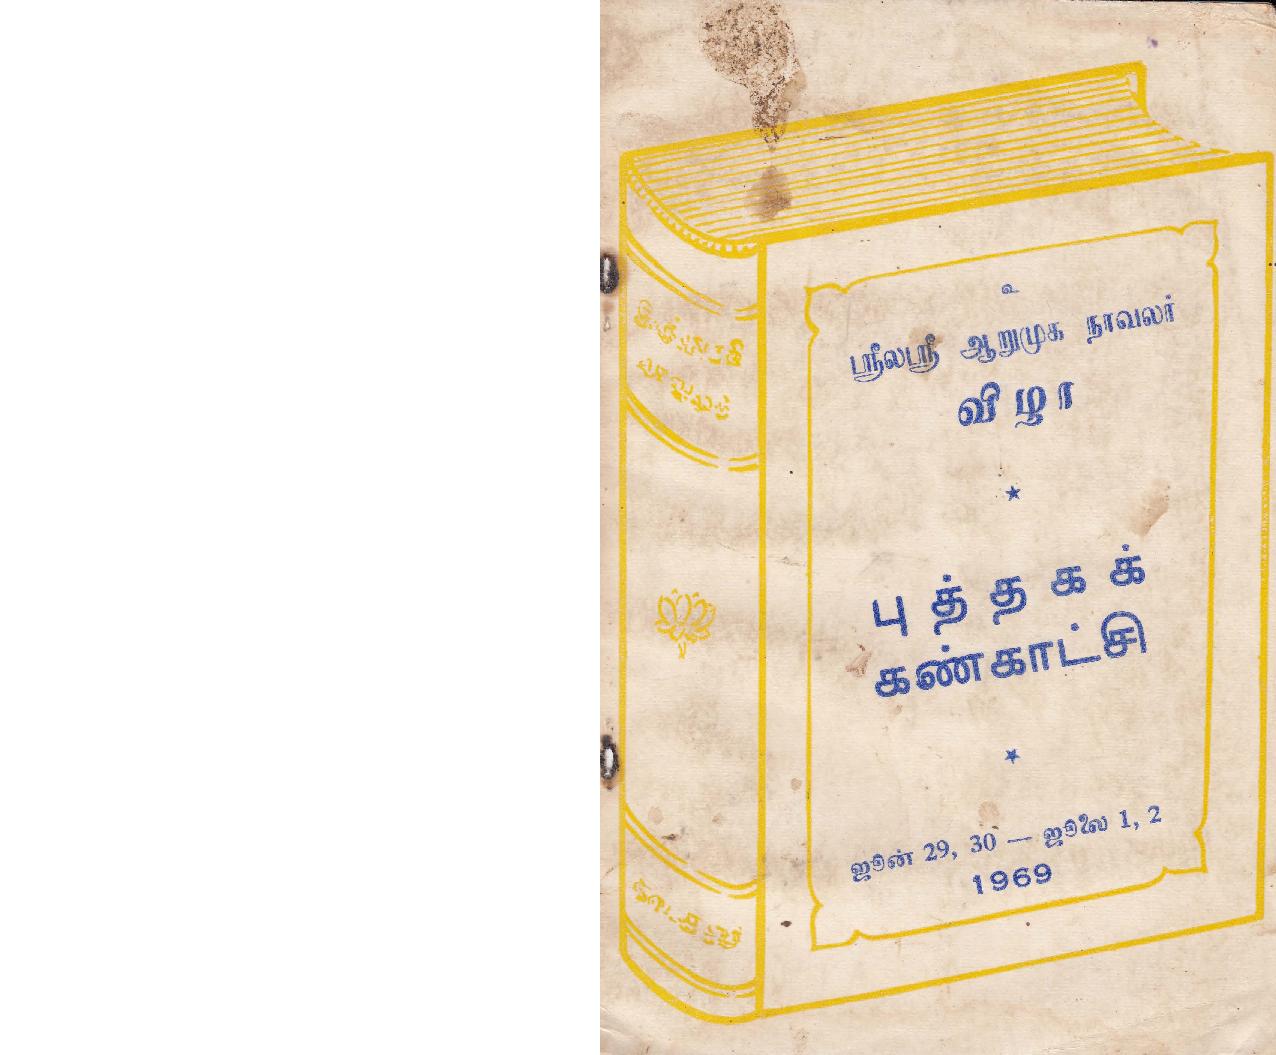 உ
ஸ்ரீலஸ்ரீ ஆறுமுக நாவலர்
விழா
★
புத்தகக்
கண்காட்சி
★
ஜூன் 29, 30 — ஜூலை 1, 2
1969